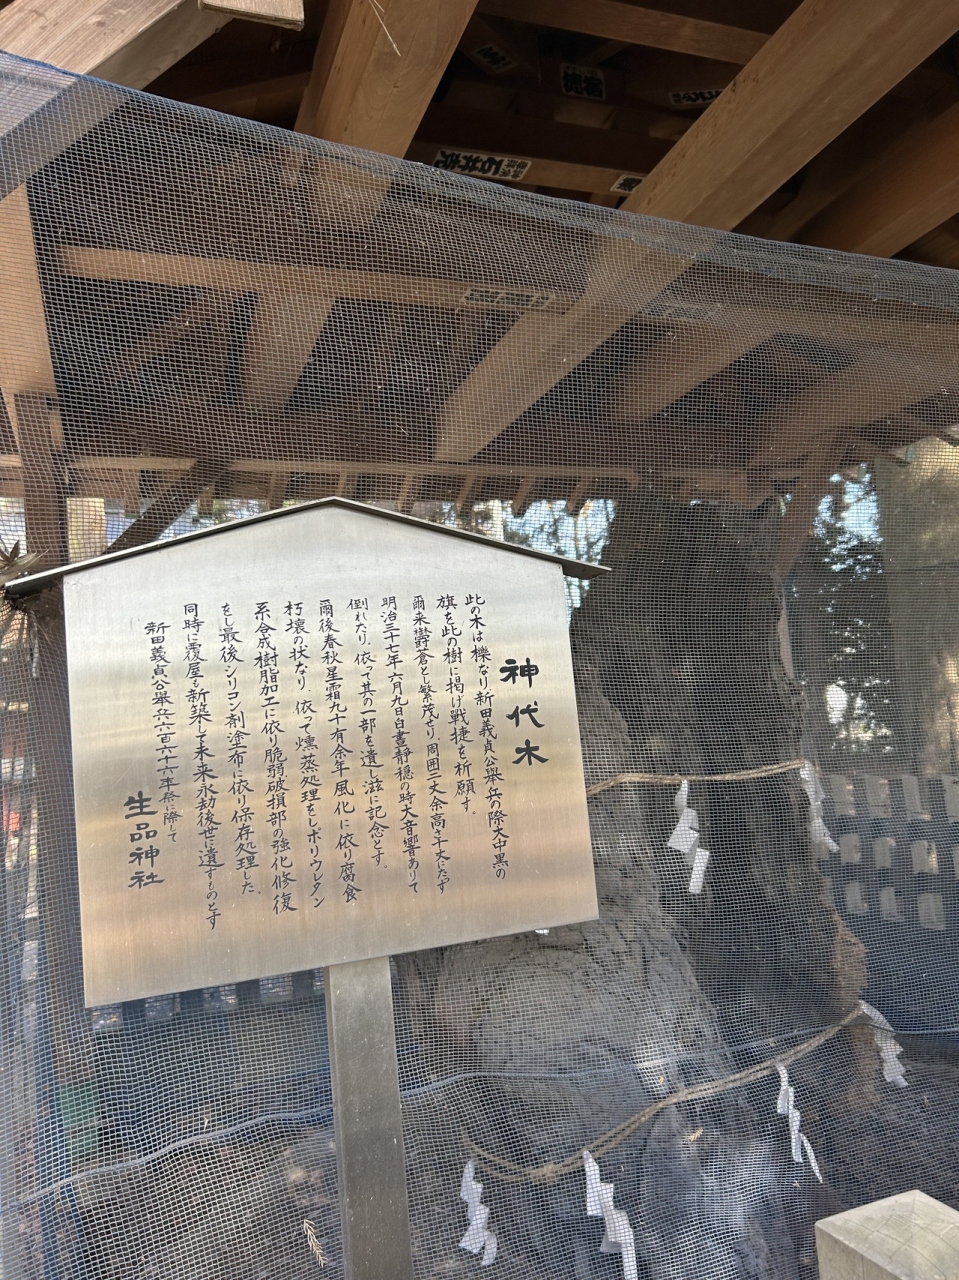 神代木
此の木は櫟なり新田義貞公挙兵の際大中黒の
旗を此の樹に掲げ戦捷を祈願す。
爾来欝倉と繁茂せり、周囲二丈余高さ十丈にたす
明治三十七年六月九日白昼静穏の時大音響ありて
倒れたり、依て其の一部を遺し滋に記念とす。
爾後春秋星霜九十有余年風化に依り腐食
朽壊の状なり、依って燻蒸処理をしポリウレタン
系合成樹脂加工に依り脆弱破損部の強化修復
をし最後シリコン剤塗布に依り保存処理した
同時に覆屋も新築して未来永劫後世に遺すものとす
新田義貞公挙兵六百六十六年祭に際して
生品神社